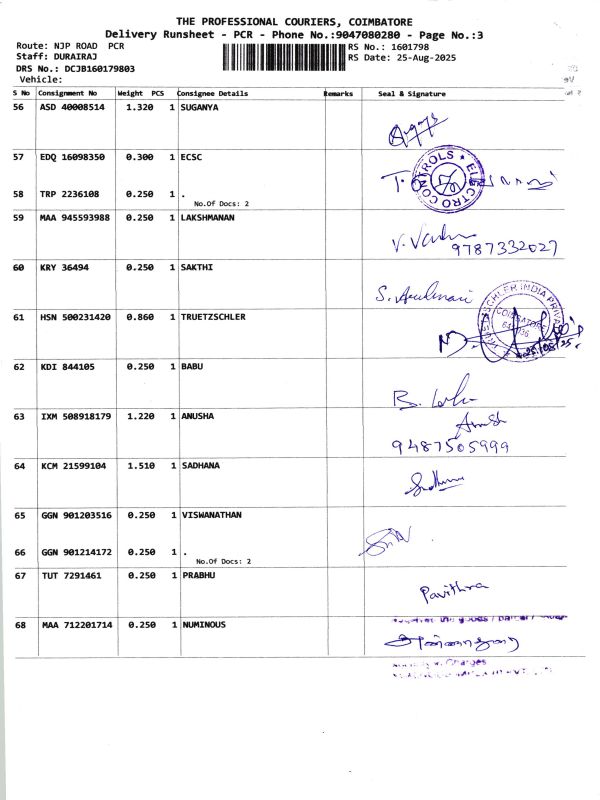 THE PROFESSIONAL COURIERS, COIMBATORE
Delivery Runsheet - PCR - Phone No.:9047080280 - Page No.:3
Route: NJP ROAD PCR
RS No.: 1601798
Staff: DURAIRAJ
RS Date: 25-Aug-2025
DRS No.: DCJB160179803
Vehicle:
S No Consignment No Weight PCS Consignee Details Remarks Seal & Signature
56 ASD 40008514 1.320 1 SUGANYA
57 EDQ 16098350 0.300 1 ECSC
ELECTRO CONTROLS
58 TRP 2236108 0.250 1 .
No.Of Docs: 2
59 MAA 945593988 0.250 1 LAKSHMANAN
9787332027
60 KRY 36494 0.250 1 SAKTHI
61 HSN 500231420 0.860 1 TRUETZSCHLER
62 KDI 844105 0.250 1 BABU
63 IXM 508918179 1.220 1 ANUSHA
9487505999
64 KCM 21599104 1.510 1 SADHANA
65 GGN 901203516 0.250 1 VISWANATHAN
66 GGN 901214172 0.250 1 .
No.Of Docs: 2
67 TUT 7291461 0.250 1 PRABHU
Pavithra
68 MAA 712201714 0.250 1 NUMINOUS